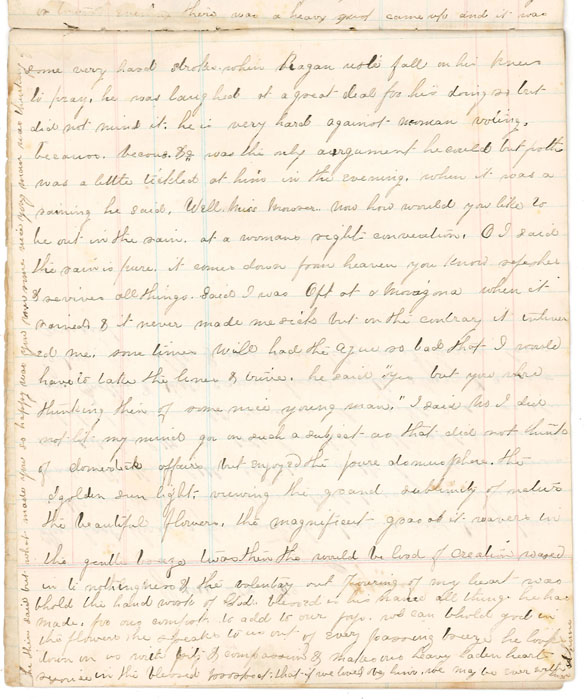 evening there was a heavy gust came up and it was
some very hard strokes. when Ragan will fall on his knees
to pray. he was laughed at a great deal for his doing so but
did not mind it. he is very hard against woman voting.
because. because & was the only argument he could but forth
was a little tickled at him in the evening. when it was a
raining he said. Well Miss now how would you like to
be out in the rain. at a womans right convention. O I said
the rain is pure. it comes down from heaven you know refreshes
& revives all things. said I was Oft at when it
rained & it never made me sick but on the contrary it
ed me. some times Will had the ague so bad that I would
have to take the lines & drive. he said "yes but you were
thinking then of some nice young man." I said No I did
not let my mind go on such a subject as that did not think
of domestick affairs but enjoyed the pure atmosphere. the
golden sun light. viewing the grand sublimity of nature
the beautiful flowers. the magnificent grass as it waves in
the gentle breeze twas then the would be lord of Creation
in to nothingness & the voluntary out pouring of my heart was
bhold the hand work of God. blessed is his name all things he has
made. for our comfort. to add to our joys. we can bhold god in
the flowers he speaks to us out of every passing breeze he looks
down on us with pity & compassion & makes our heavy laden hearts
rejoice in the blessed prospect. that if we live by him. we may be ever with
him
he then said but what made you so happy was you some nice young man was thinking